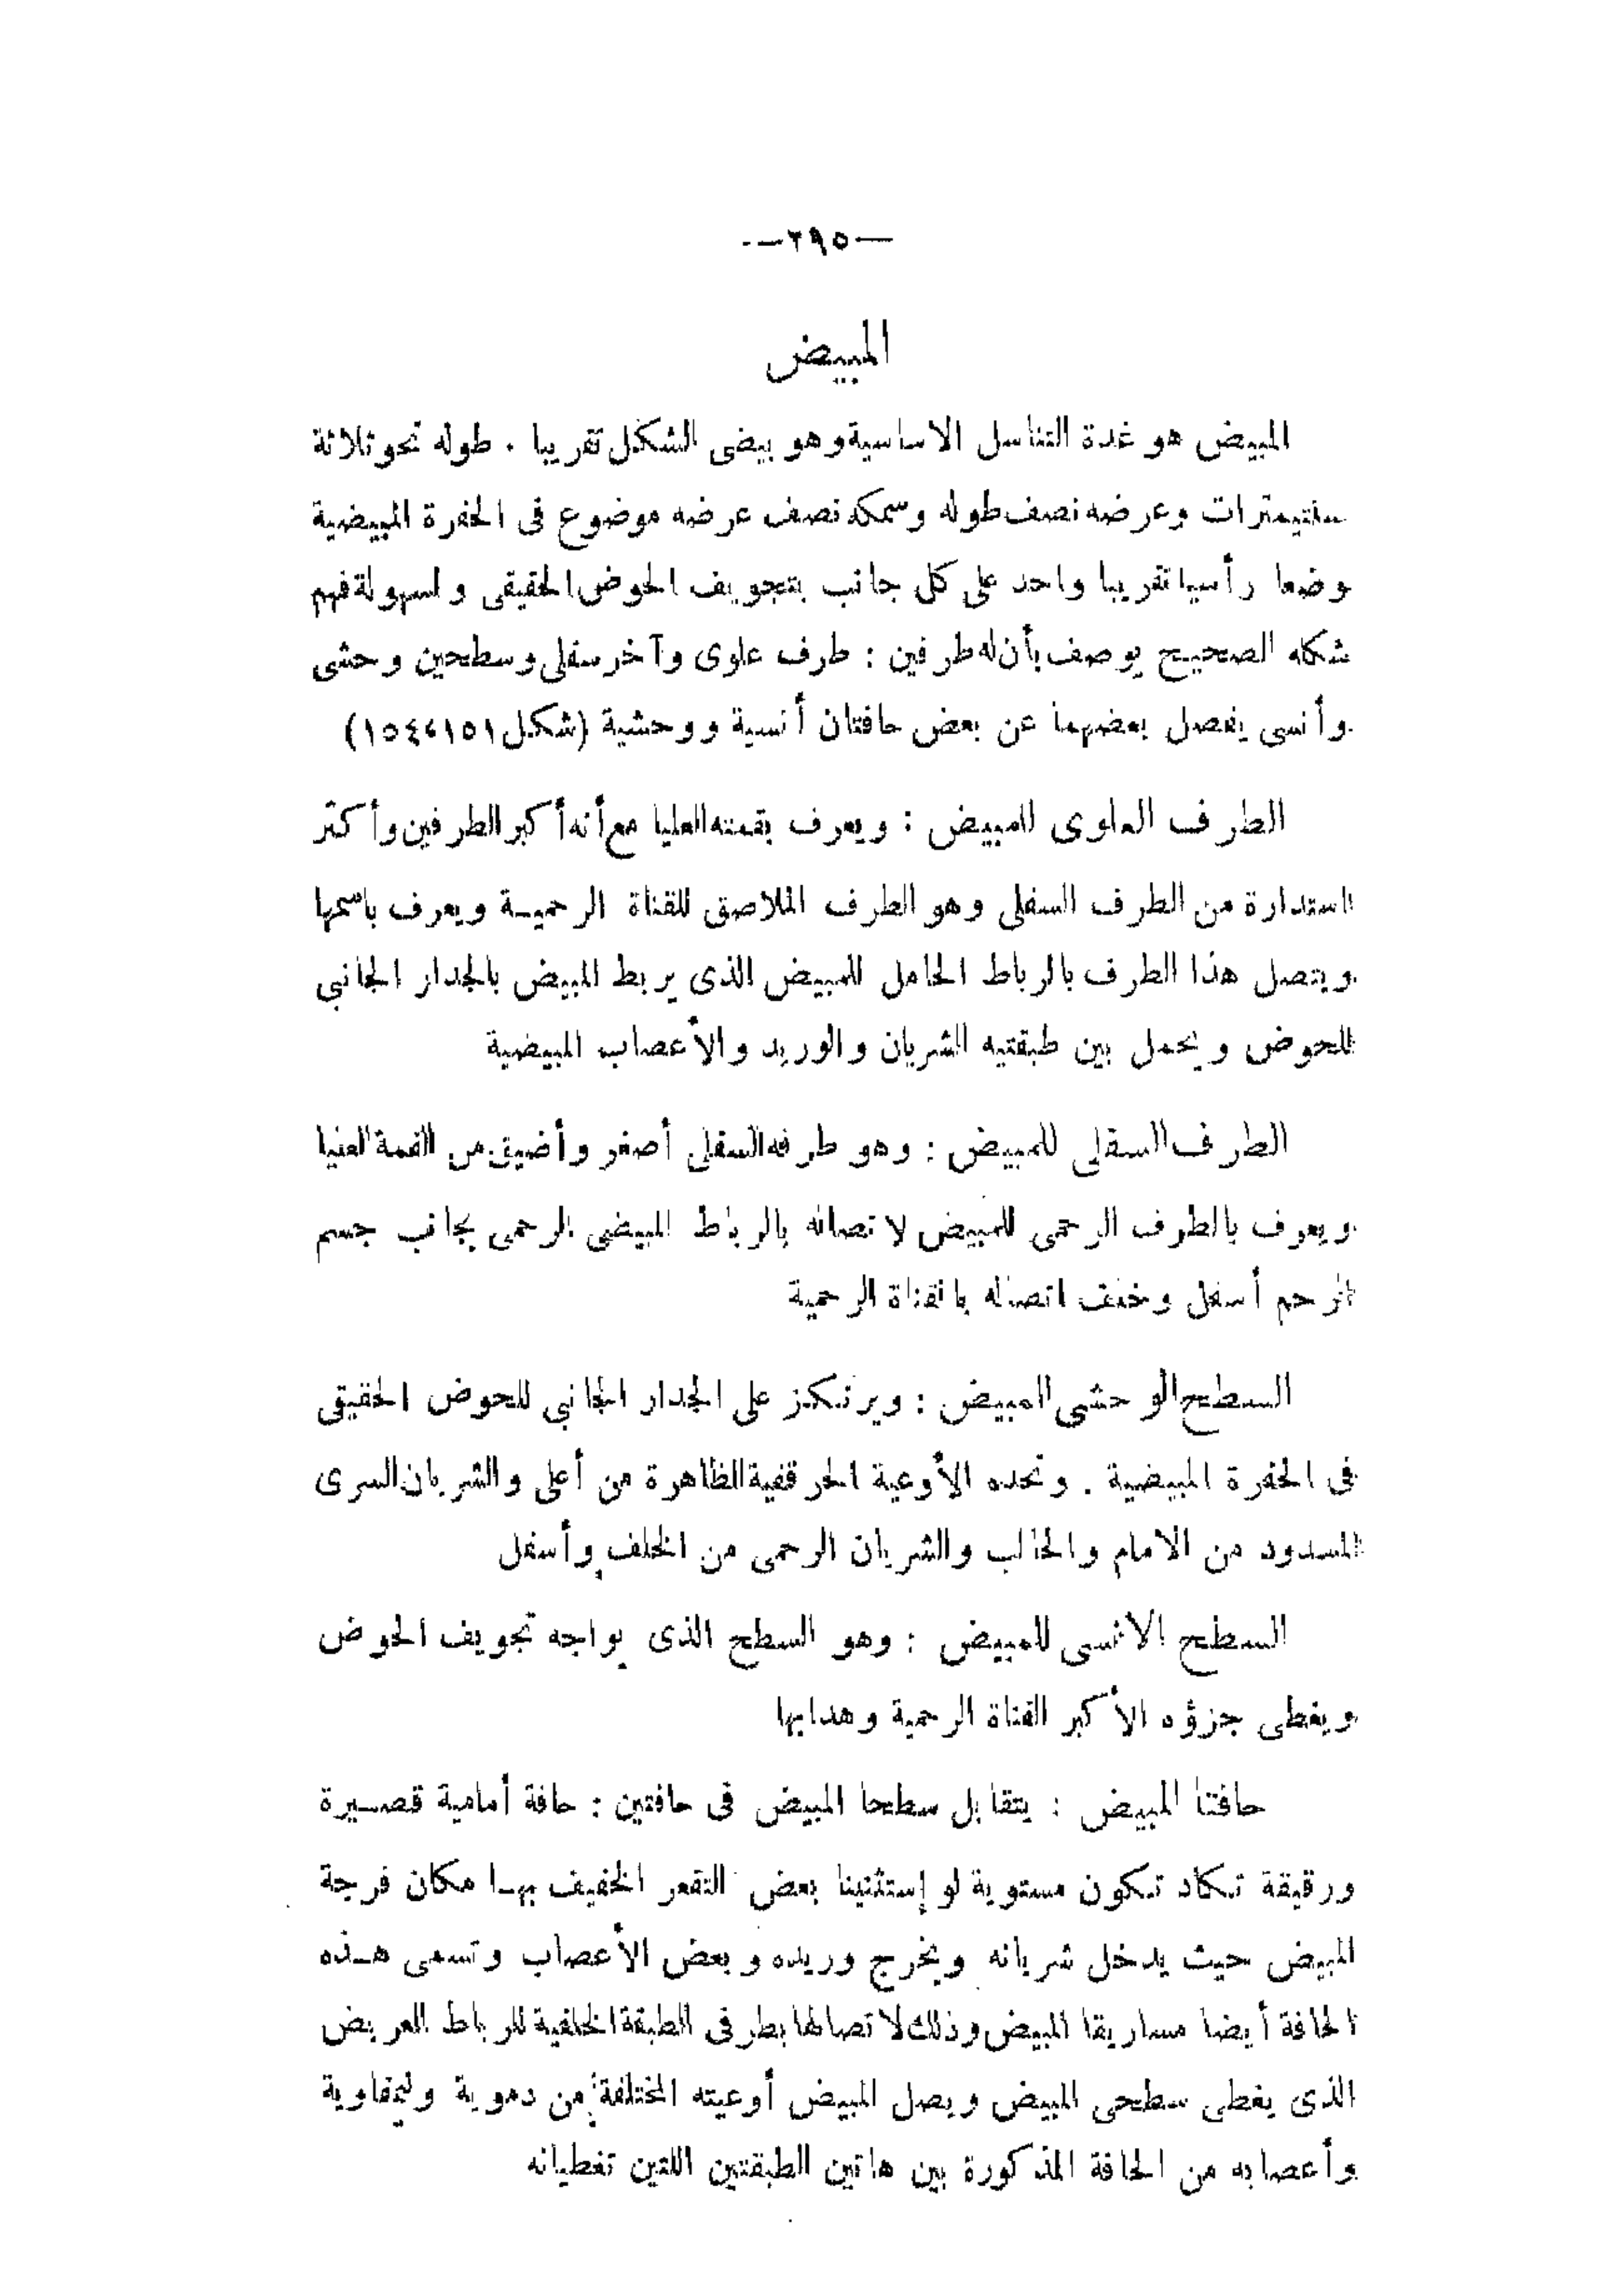 —٢٩٥—
المبيض
المبيض هو غدة التناسل الاساسية وهو بيضى الشكل تقريبا . طوله نحو ثلاثة
سنتيمترات وعرضه نصف طوله وسمكه نصف عرضه موضوع فى الحفرة المبيضية
وضعا رأسيا تقريبا واحد على كل جانب بتجويف الحوض الحقيقى ولسهولة فهم
شكله الصحيح يوصف بأن له طرفين : طرف علوى وآخر سفلى وسطحين وحشى
وأنسى يفصل بعضهما عن بعض حافتان أنسية ووحشية (شكل ١٥١،١٥٤)
الطرف العلوى للمبيض : ويعرف بقمته العليا مع أنه أكبر الطرفين وأكثر
استدارة من الطرف السفلى وهو الطرف الملاصق للقناة الرحمية ويعرف باسمها
ويتصل هذا الطرف بالرباط الحامل للمبيض الذى يربط المبيض بالجدار الجانبى
للحوض ويحمل بين طبقتيه الشريان والوريد والأعصاب المبيضية
الطرف السفلى للمبيض : وهو طرفه السفلى أصغر وأضيق من القمة العليا
ويعرف بالطرف الرحمى للمبيض لاتصاله بالرباط المبيضى الرحمى بجانب جسم
الرحم أسفل وخلف اتصاله بالقناة الرحمية
السطح الوحشى للمبيض : ويرتكز على الجدار الجانبى للحوض الحقيقى
فى الحفرة المبيضية . وتحده الأوعية الحرقفية الظاهرة من أعلى والشريان السرى
المسدود من الامام والحالب والشريان الرحمى من الخلف وأسفل
السطح الانسى للمبيض : وهو السطح الذى يواجه تجويف الحوض
ويغطى جزؤه الأكبر القناة الرحمية وهدابها
حافتا المبيض : يتقابل سطحا المبيض فى حافتين : حافة أمامية قصيرة
ورقيقة تكاد تكون مستوية لو إستثنينا بعض التقعر الخفيف بها مكان فرجة
المبيض حيث يدخل شريانه ويخرج وريده وبعض الأعصاب وتسمى هذه
الحافة أيضا مساريقا المبيض وذلك لاتصالها بطرفى الطبقة الخلفية للرباط العريض
الذى يغطى سطحى المبيض ويصل المبيض أوعيته المختلفة من دموية وليمفاوية
وأعصابه من الحافة المذكورة بين هاتين الطبقتين اللتين تغطيانه